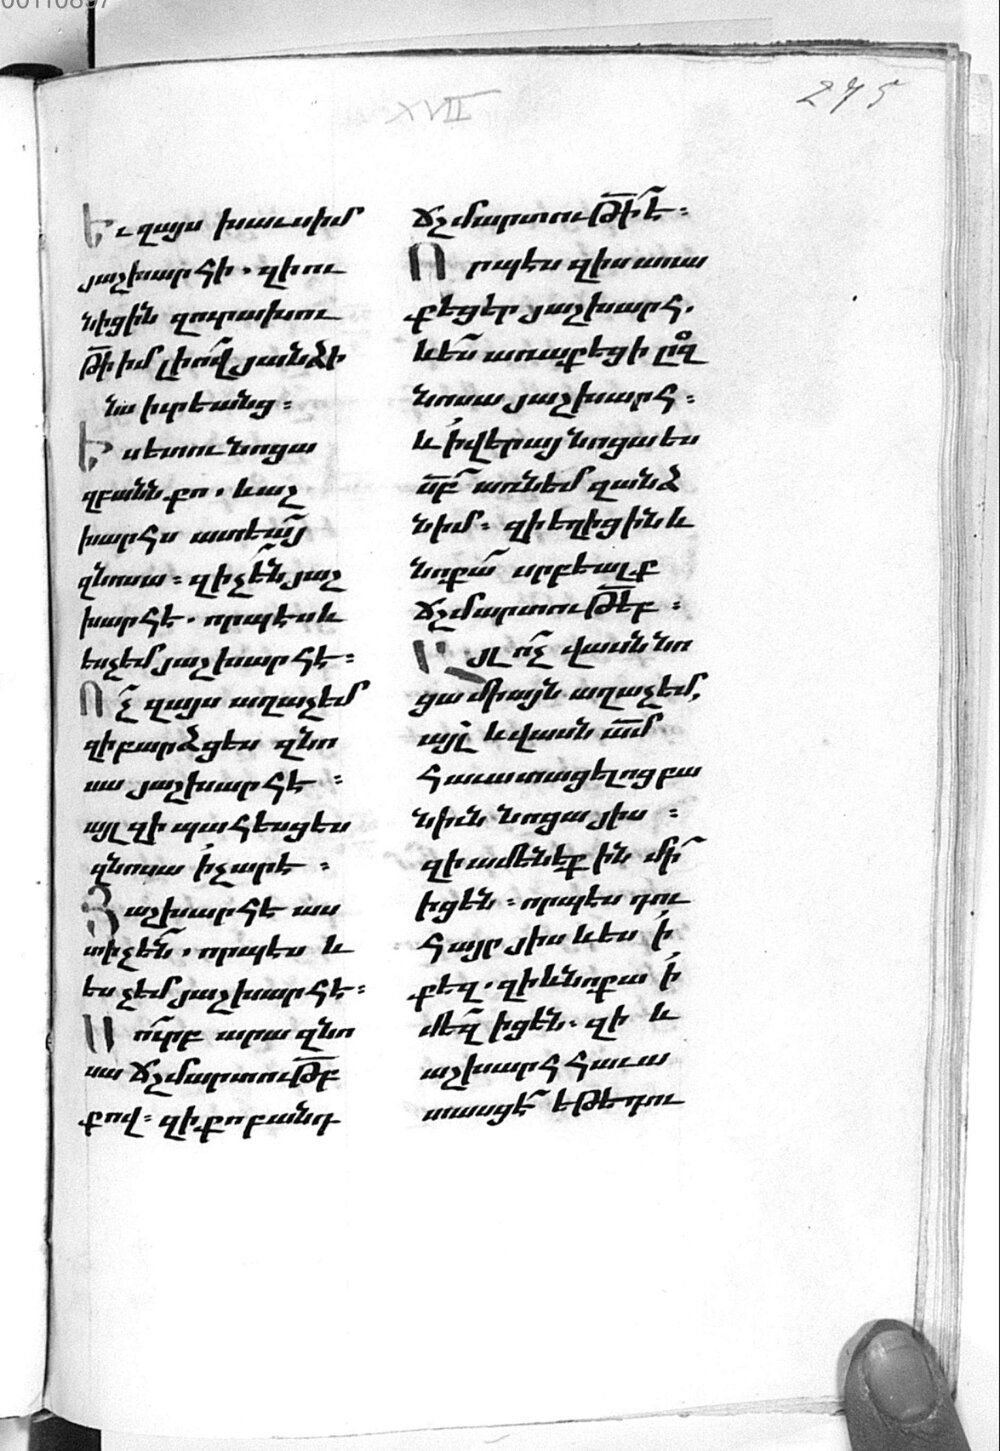 00110897
XVII
275
Եւ զայս խաւսիմ
յաշխարհի. զի ու
նիցին զուրախու
թի իմ լիով յանձի
նս իւրեանց։
Ես ետու նոցա
զբանն քո. և աշ
խարհս ատեաց
զնոսա։ զի չեն յաշ
խարհէ. որպէս և
ես չեմ յաշխարհէ։
Ոչ զայս աղաչեմ
զի բարձցես զնո
սա յաշխարհէ։
այլ զի պահեսցես
զնոսա ի չարէ։
Յաշխարհէ աս
տի չեն. որպէս և
ես չեմ յաշխարհէ։
Սուրբ արա զնո
սա ճշմարտուԹբ
քով։ զի քո բանդ
ճշմարտուԹի է։
Որպէս զիս առա
քեցեր յաշխարհ.
և ես առաքեցի ըզ
նոսա յաշխարհ։
և ի վերայ նոցա ես
սբ առնեմ զանձ
նիմ։ զի եղիցին և
նոքա սրբեալք
ճշմարտուԹեբ։
Այլ ոչ վասն նո
ցա միայն աղաչեմ,
այլ և վասն ամ
հաւատացելոց բա
նիւն նոցա յիս։
զի ամենեքին մի
իցեն։ որպէս դու
հայր յիս և ես ի
քեզ. զի և նոքա ի
մեզ իցեն. զի և
աշխարհ հաւա
տասցէ եԹե դու